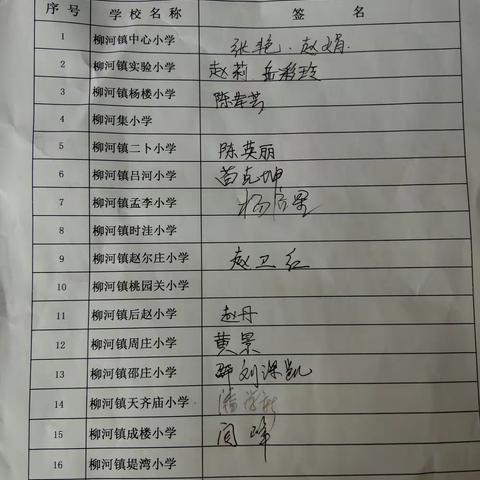 序号 学校名称 签名
1 柳河镇中心小学 张艳、赵娟
2 柳河镇实验小学 赵莉 岳彩玲
3 柳河镇杨楼小学
4 柳河集小学
5 柳河镇二卜小学 陈英丽
6 柳河镇吕河小学 苗克坤
7 柳河镇孟李小学
8 柳河镇时洼小学
9 柳河镇赵尔庄小学 赵卫红
10 柳河镇桃园关小学
11 柳河镇后赵小学 赵丹
12 柳河镇周庄小学 黄景
13 柳河镇邵庄小学 刘深凯
14 柳河镇天齐庙小学
15 柳河镇成楼小学
16 柳河镇堤湾小学